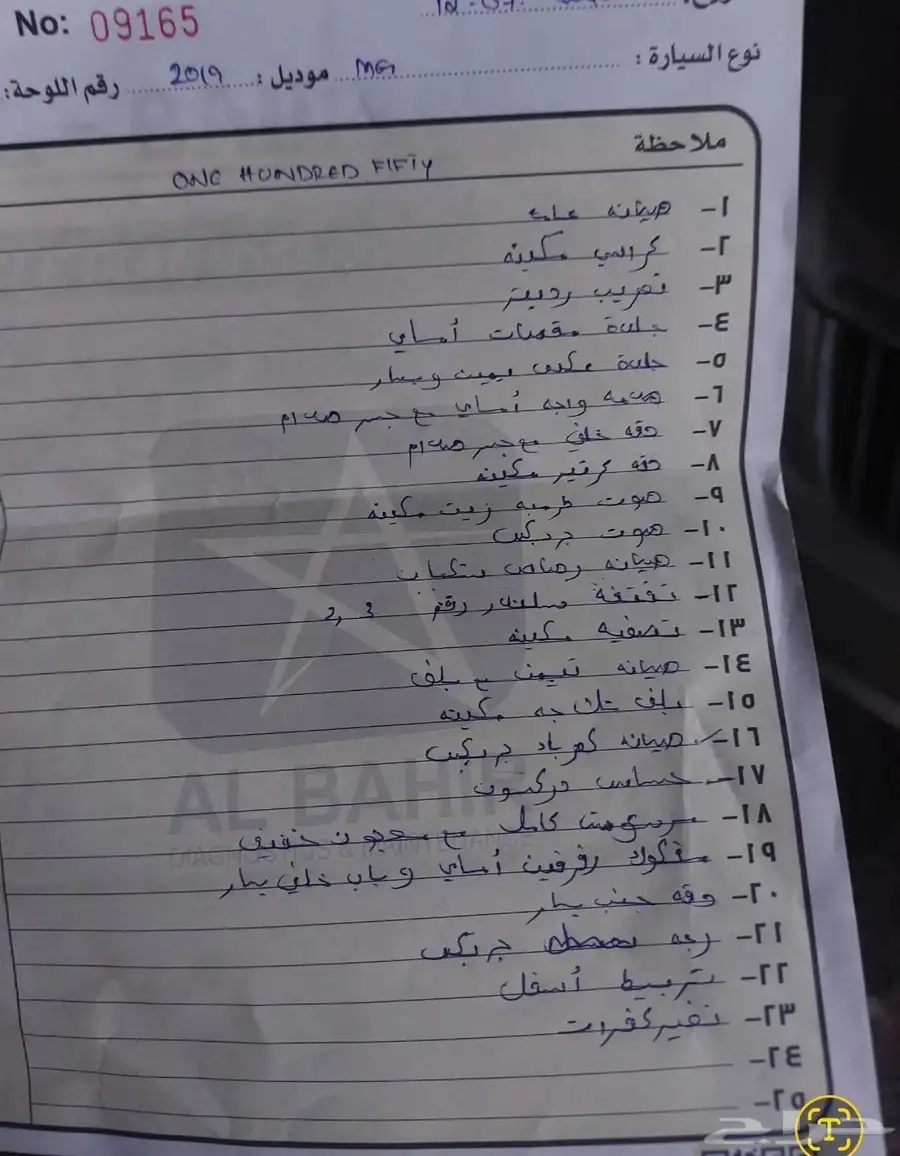 No: 09165
نوع السيارة : MG موديل : 2019 رقم اللوحة:
ملاحظة
ONE HUNDRED FIFTY
١- صيانه عامه
٢- كراسي مكينه
٣- تهريب رديتر
٤- جلدة مقصات أمامي
٥- جلدة عكس يمين ويسار
٦- صدمه واجه أمامي مع جسر صدام
٧- دقه خلفي مع جسر صدام
٨- دقه كرتير مكينه
٩- صوت طرمبه زيت مكينه
١٠- صوت جربكس
١١- صيانه رصاص
١٢- تفتفة سلندر رقم 2, 3
١٣- تصفيه مكينه
١٤- صيانه تيمن مع بلف
١٥- بلف مكينه
١٦- صيانه كهرباء جربكس
١٧- حساس دركسون
١٨- مرشوش كامل مع معجون خفيف
١٩- مفكوك رفرفين أمامي وباب خلفي يسار
٢٠- دقه جنب يسار
٢١- رجه جربكس
٢٢- تربيط أسفل
٢٣- تغير كفرات
٢٤-
٢٥-
AL BAHIR
DIAGNOSTICS & MAINTENANCE
حراج